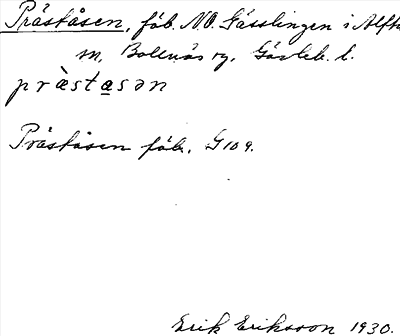 Präståsen, fäb. N.O. Fässlingen i Alfta
sn, Bollnäs rg. Gävleb. l.
præ̀stasən
Präståsen fäb. G 109.
Erik Eriksson 1930.